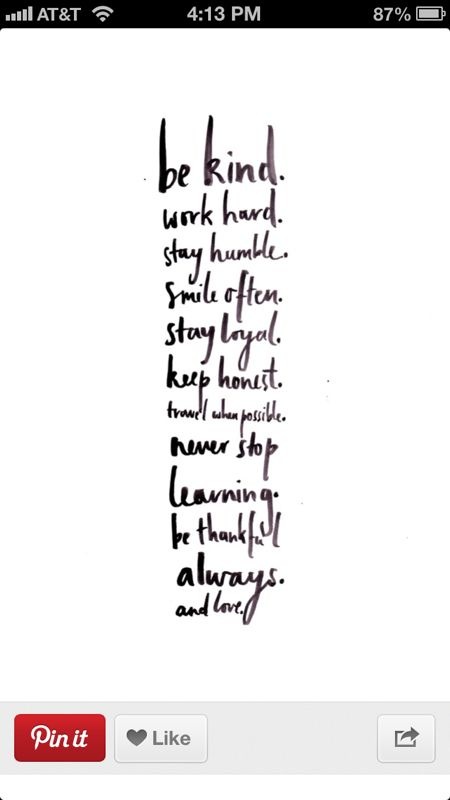 AT&T 4:13 PM 87%
be kind.
work hard.
stay humble.
smile often.
stay loyal.
keep honest.
travel when possible.
never stop
learning.
be thankful
always.
and love.
Pin it Like